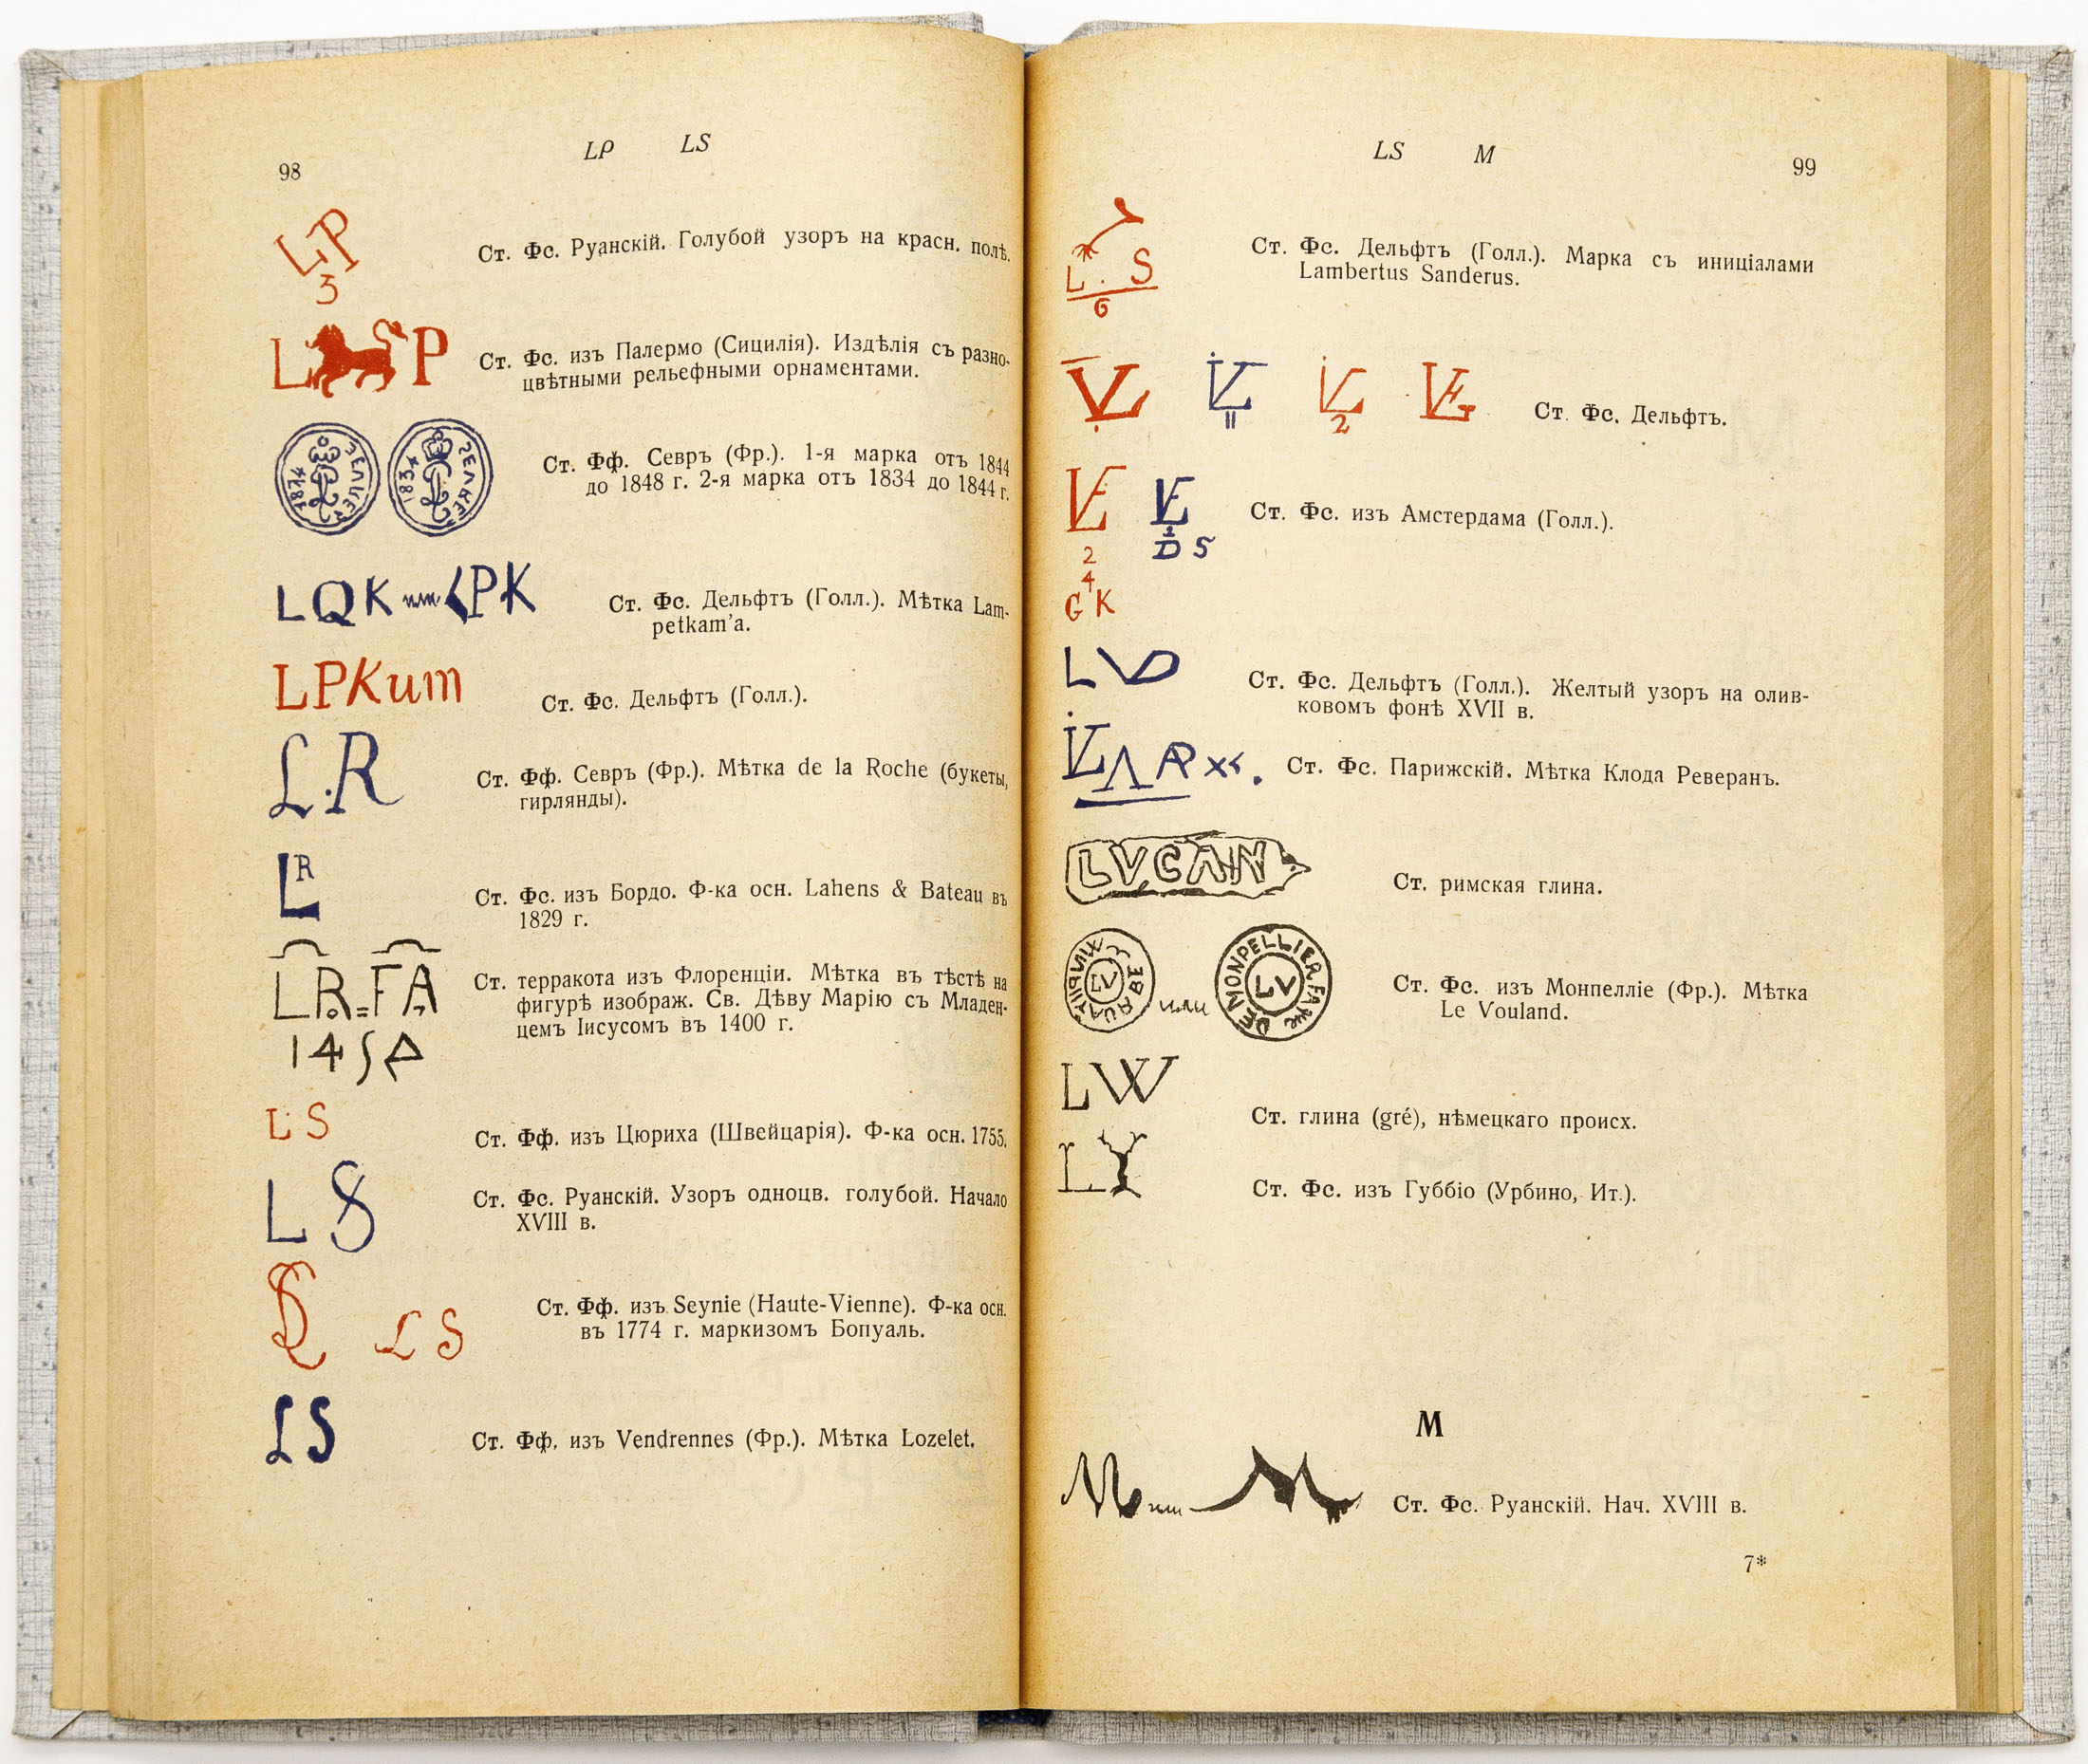 98
LP LS
LP
3
Ст. Фс. Руанскій. Голубой узоръ на красн. полѣ.
L P
Ст. Фс. изъ Палермо (Сицилія). Издѣлія съ разно-
цвѣтными рельефными орнаментами.
1834
Ст. Фф. Севръ (Фр.). 1-я марка отъ 1844
до 1848 г. 2-я марка отъ 1834 до 1844 г.
LQK или LPK
Ст. Фс. Дельфтъ (Голл.). Мѣтка Lam-
petkam'a.
LPKum
Ст. Фс. Дельфтъ (Голл.).
L.R
Ст. Фф. Севръ (Фр.). Мѣтка de la Roche (букеты,
гирлянды).
LR
Ст. Фс. изъ Бордо. Ф-ка осн. Lahens & Bateau въ
1829 г.
LR=FA
Ст. терракота изъ Флоренціи. Мѣтка въ тѣстѣ на
фигурѣ изображ. Св. Дѣву Марію съ Младен-
цемъ Іисусомъ въ 1400 г.
LS
Ст. Фф. изъ Цюриха (Швейцарія). Ф-ка осн. 1755.
LS
Ст. Фс. Руанскій. Узоръ одноцв. голубой. Начало
XVIII в.
LS
Ст. Фф. изъ Seynie (Haute-Vienne). Ф-ка осн.
въ 1774 г. маркизомъ Бопуаль.
LS
Ст. Фф. изъ Vendrennes (Фр.). Мѣтка Lozelet.
LS M
99
L.S
6
Ст. Фс. Дельфтъ (Голл.). Марка съ иниціалами
Lambertus Sanderus.
2
Ст. Фс. Дельфтъ.
2
4
GK
D 5
Ст. Фс. изъ Амстердама (Голл.).
LVD
Ст. Фс. Дельфтъ (Голл.). Желтый узоръ на олив-
ковомъ фонѣ XVII в.
Ст. Фс. Парижскій. Мѣтка Клода Реверанъ.
LVCAN
Ст. римская глина.
LV
или
DE MONPELLIER. FAque
LV
Ст. Фс. изъ Монпелліе (Фр.). Мѣтка
Le Vouland.
LW
Ст. глина (gré), нѣмецкаго происх.
LY
Ст. Фс. изъ Губбіо (Урбино, Ит.).
M
M или M
Ст. Фс. Руанскій. Нач. XVIII в.
7*